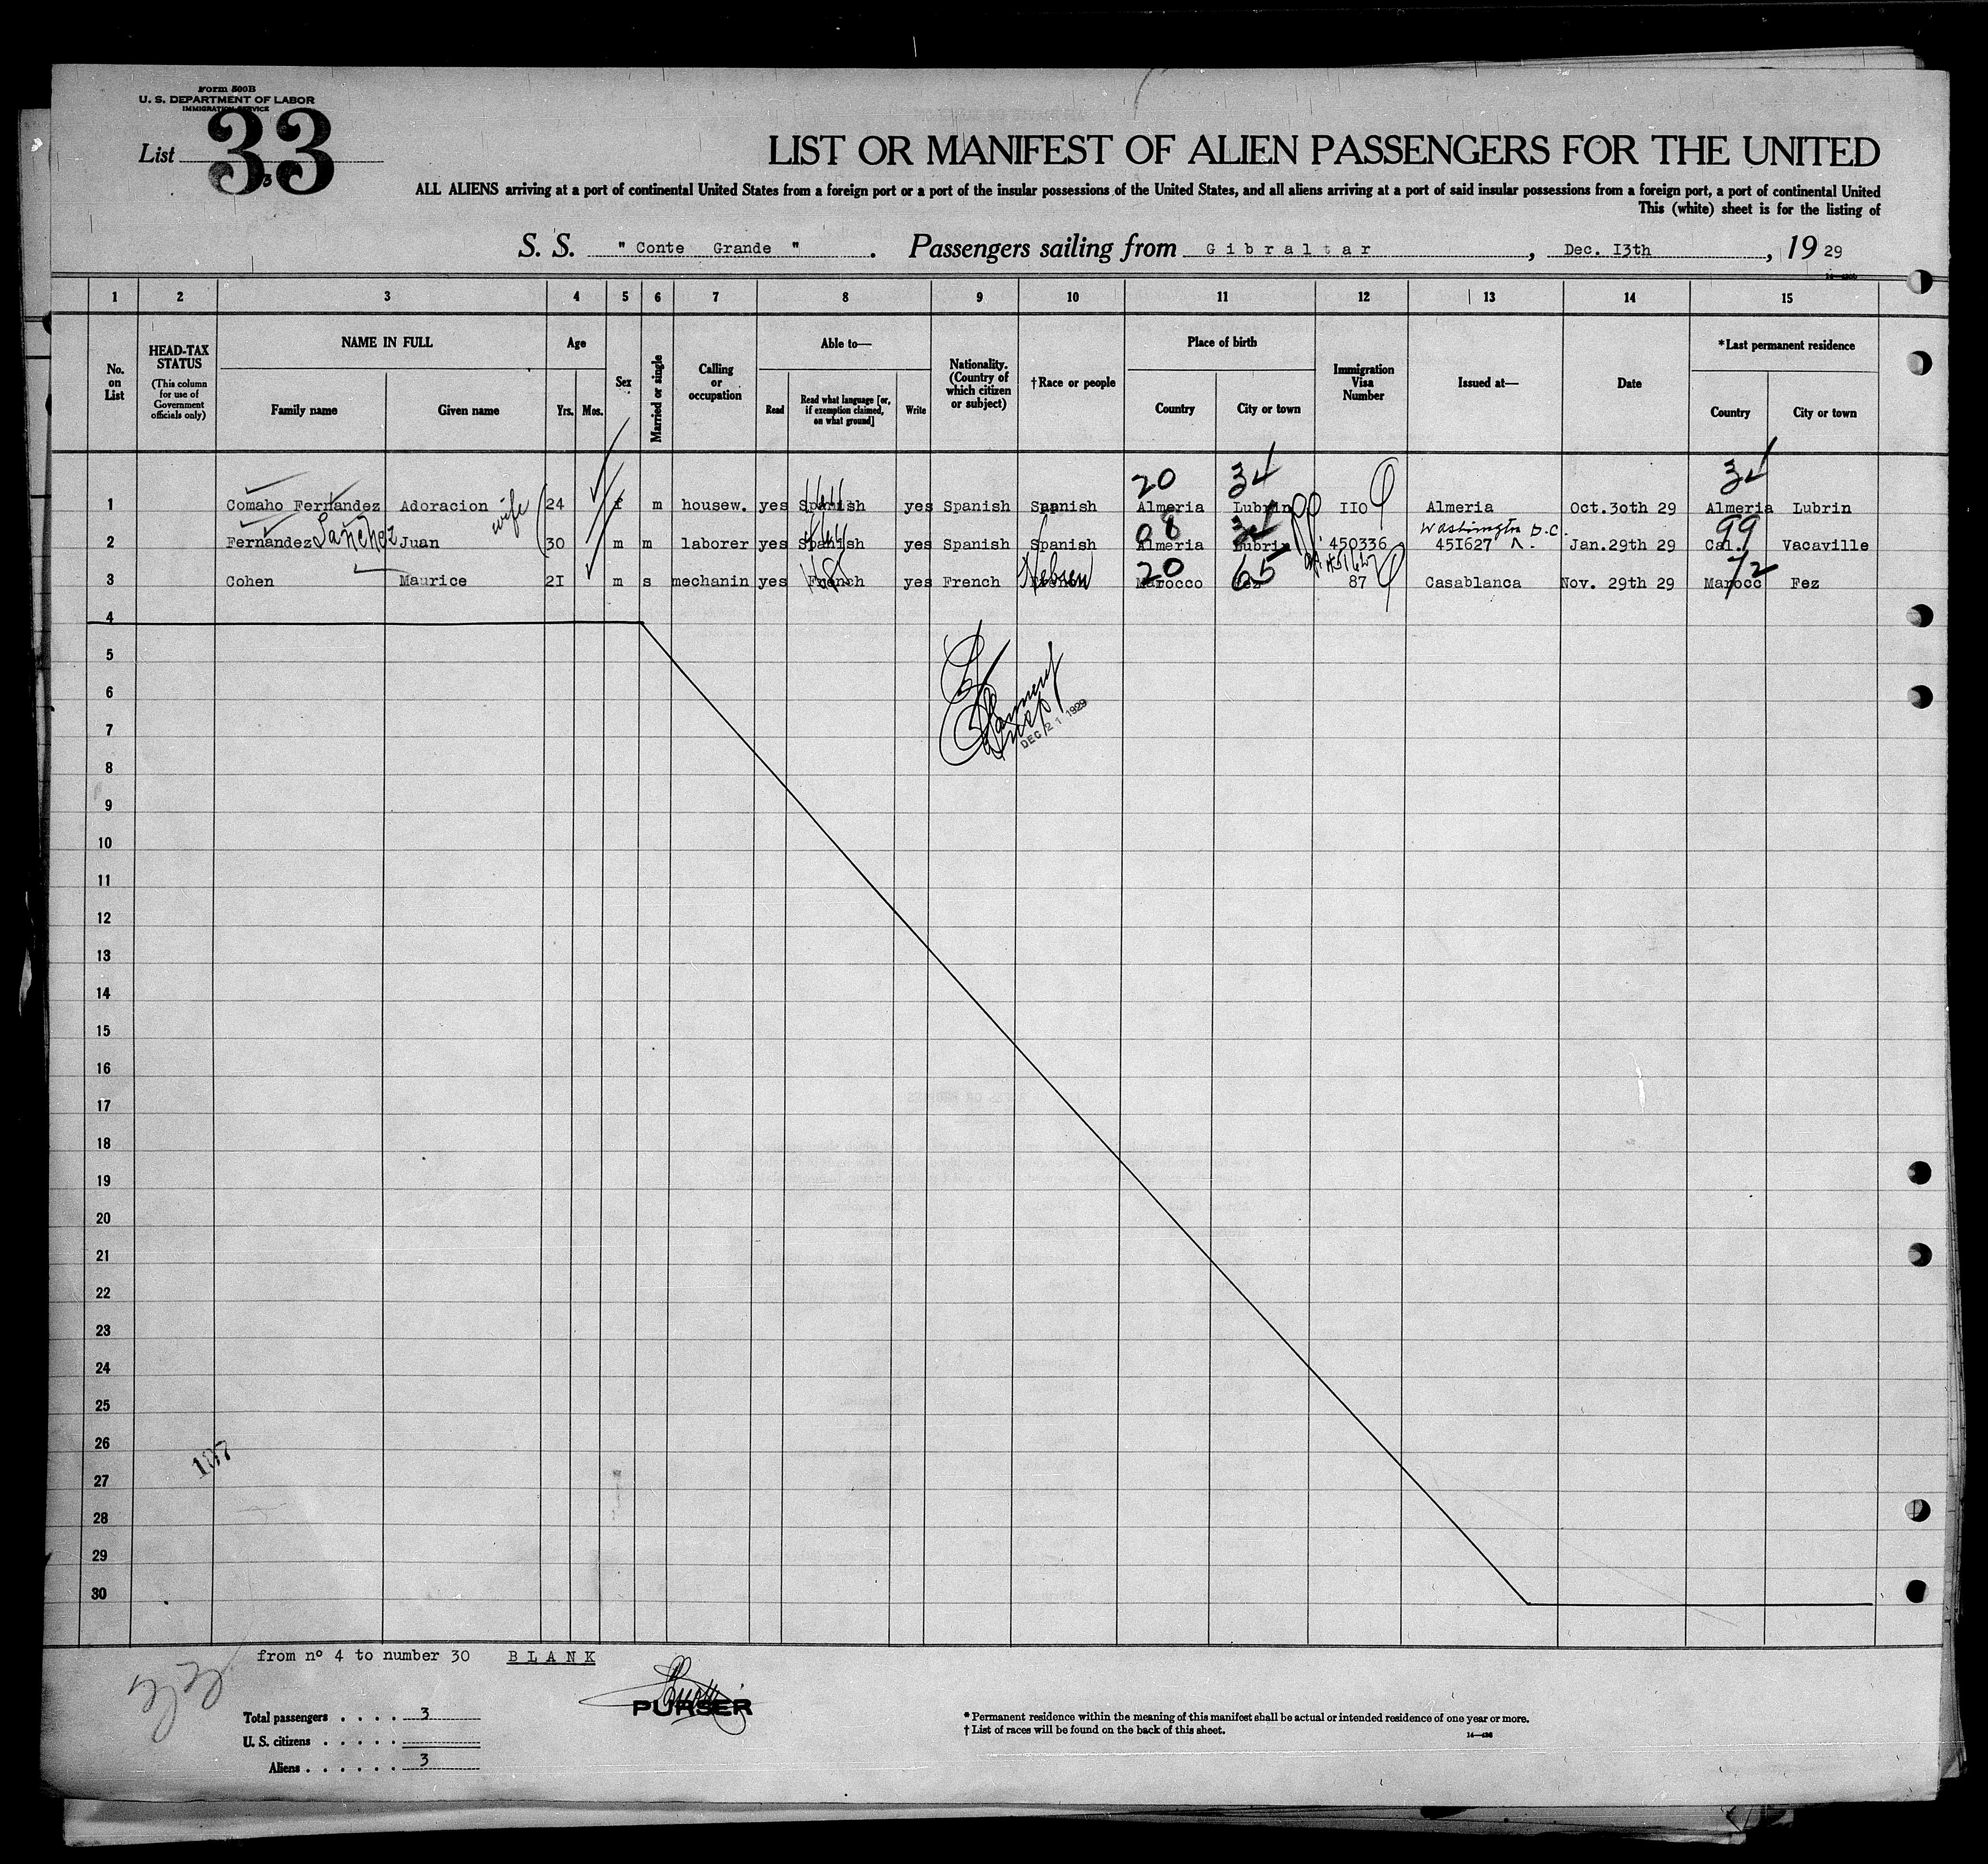 Form 500B
U. S. DEPARTMENT OF LABOR
IMMIGRATION SERVICE
List 33
LIST OR MANIFEST OF ALIEN PASSENGERS FOR THE UNITED
ALL ALIENS arriving at a port of continental United States from a foreign port or a port of the insular possessions of the United States, and all aliens arriving at a port of said insular possessions from a foreign port, a port of continental United
This (white) sheet is for the listing of
S. S. " Conte Grande " . Passengers sailing from Gibraltar , Dec. I3th , 19 29
1 2 3 4 5 6 7 8 9 10 11 12 13 14 15
No. on List
HEAD-TAX STATUS (This column for use of Government officials only)
NAME IN FULL
Family name Given name
Age
Yrs. Mos.
Sex
Married or single
Calling or occupation
Able to—
Read Read what language [or, if exemption claimed, on what ground] Write
Nationality. (Country of which citizen or subject)
†Race or people
Place of birth
Country City or town
Immigration Visa Number
Issued at—
Date
*Last permanent residence
Country City or town
20 34 34
1 Comaho Fernandez Adoracion wife 24 f m housew. yes Spanish yes Spanish Spanish Almeria Lubrin IIO Almeria Oct.3oth 29 Almeria Lubrin
08 34 Washington D.C. 99
2 Fernandez Sanchez Juan 30 m m laborer yes Spanish yes Spanish Spanish Almeria Lubrin 450336 45I627 Jan.29th 29 Cal. Vacaville
20 65 72
3 Cohen Maurice 2I m s mechanin yes French yes French Hebrew Marocco Fez 87 Casablanca Nov. 29th 29 Marocc Fez
4
5
6
7
DEC 21 1929
8
9
10
11
12
13
14
15
16
17
18
19
20
21
22
23
24
25
26
107
27
28
29
30
from nº 4 to number 30 BLANK
PURSER
Total passengers . . . . 3
U. S. citizens . . . . .
Aliens . . . . . . 3
* Permanent residence within the meaning of this manifest shall be actual or intended residence of one year or more.
† List of races will be found on the back of this sheet.